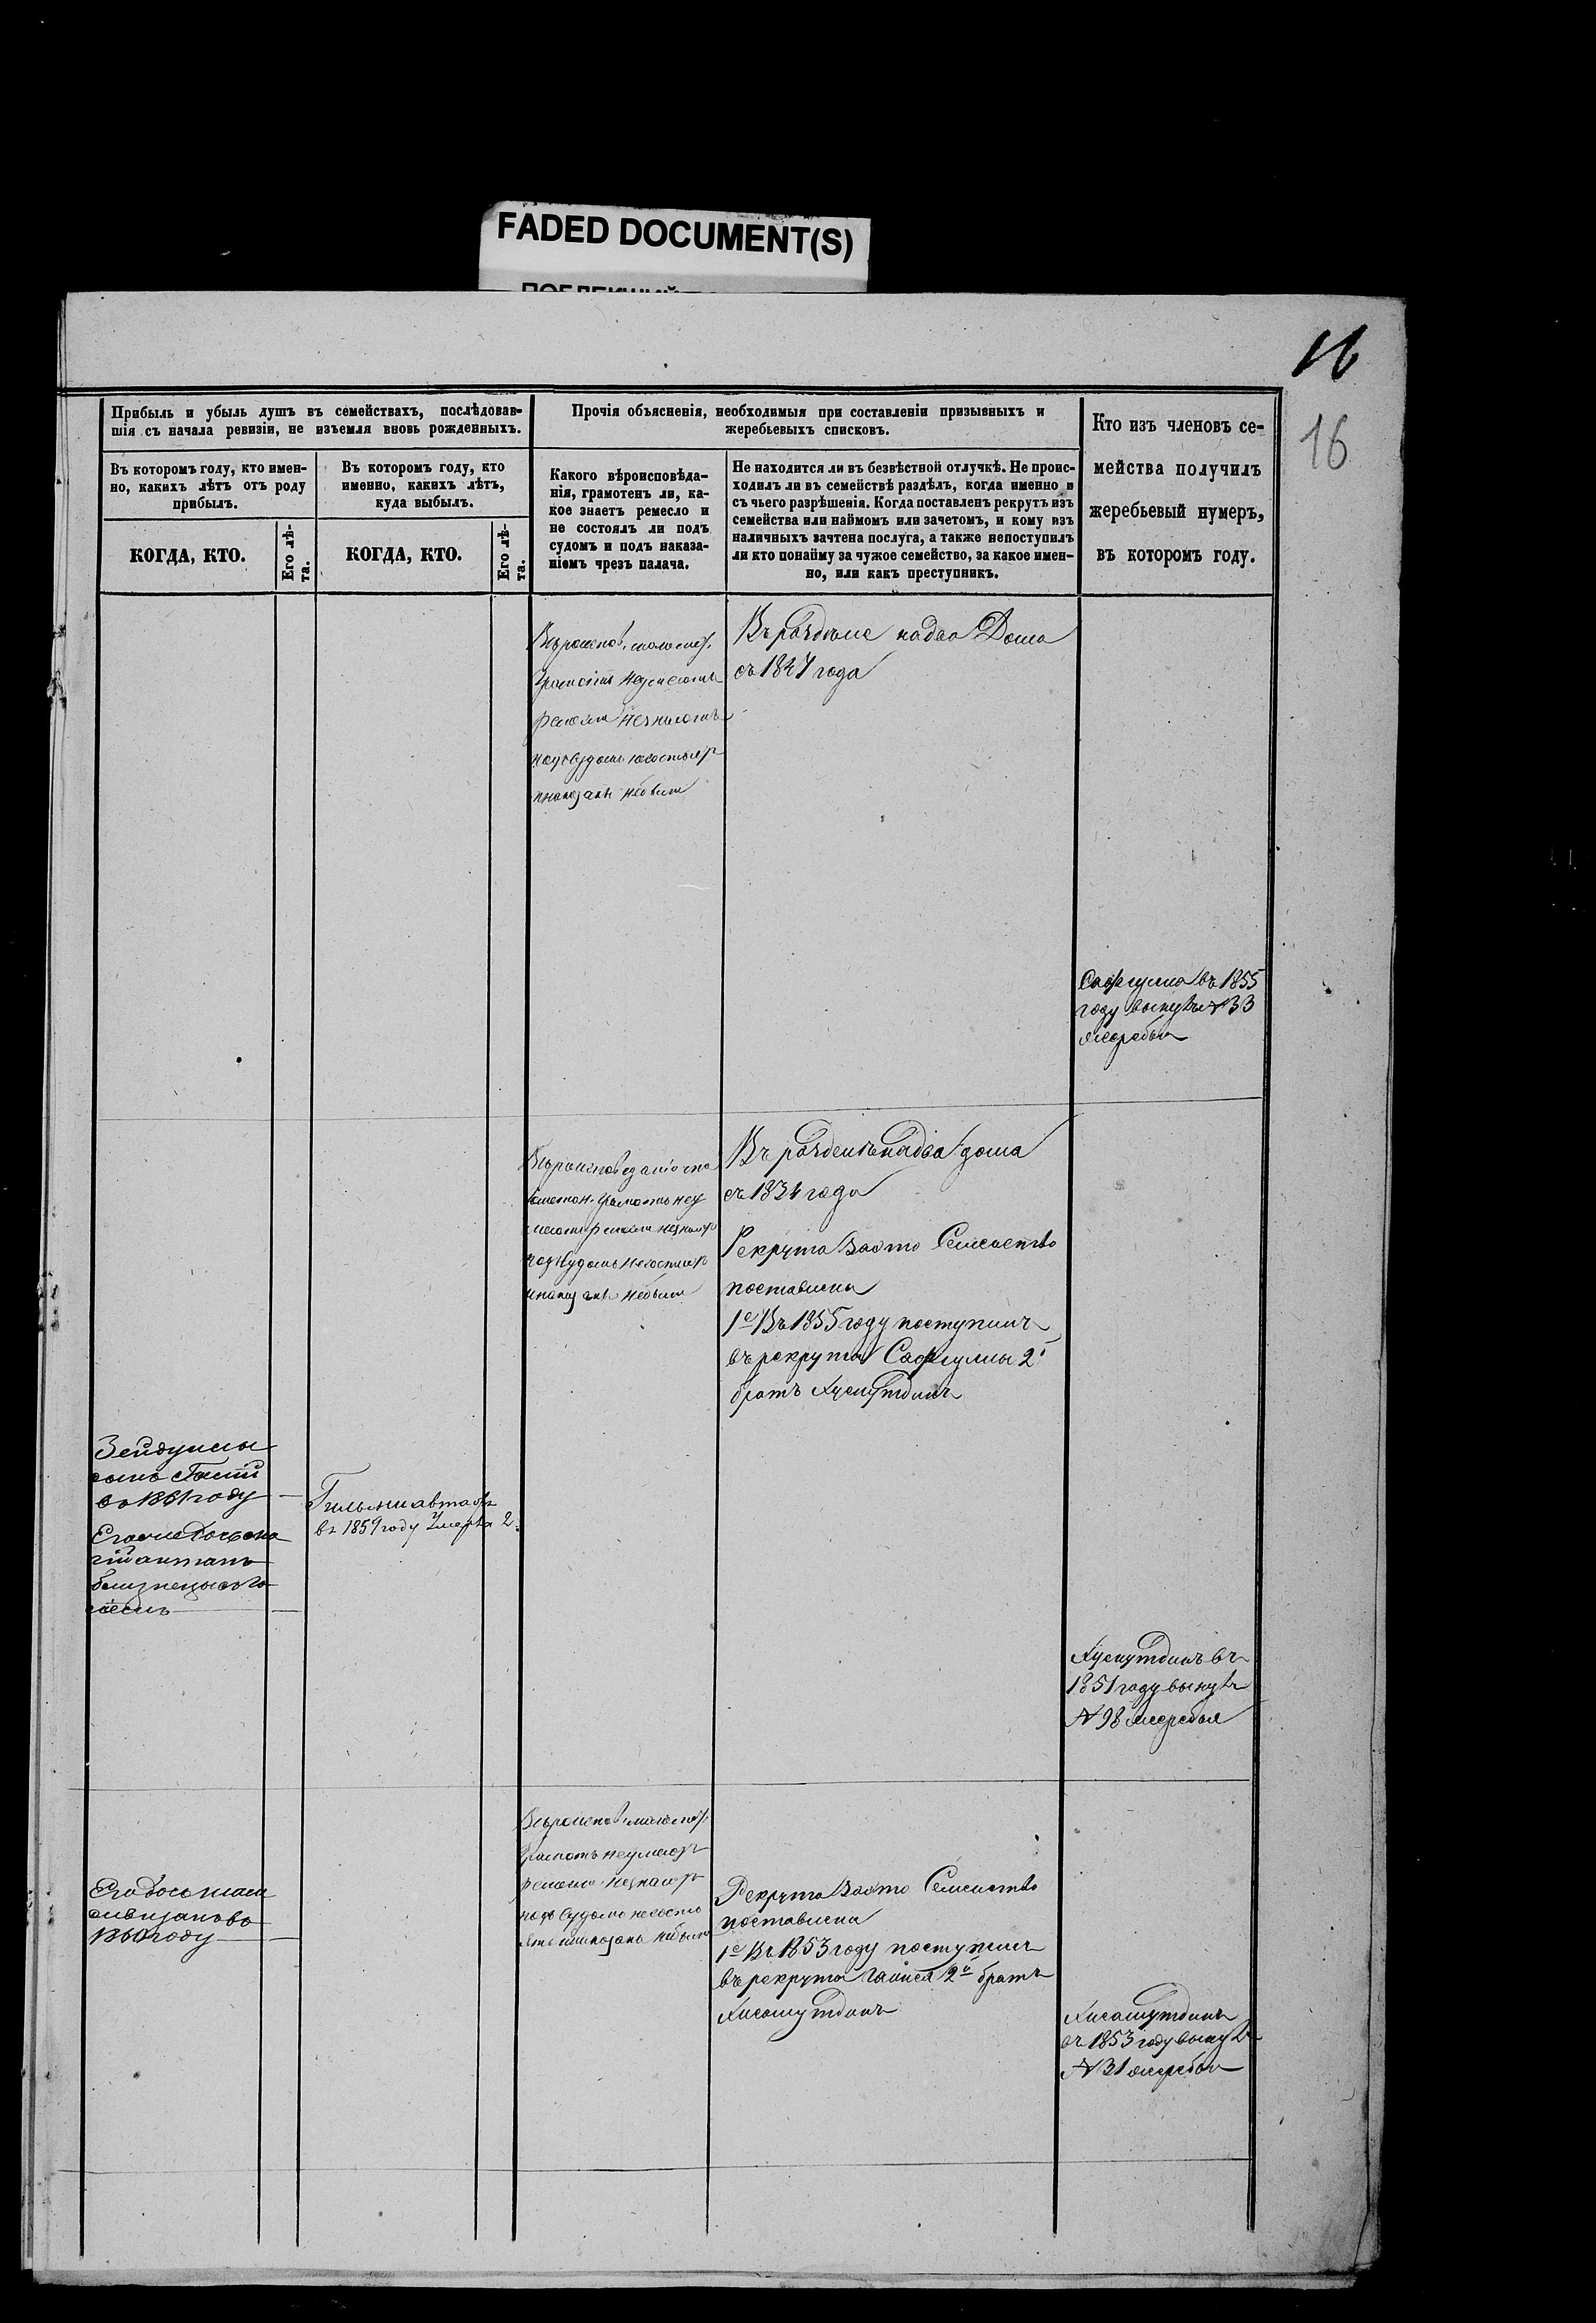 FADED DOCUMENT(S)
16
16
Прибыль и убыль душъ въ семействахъ, послѣдовав-
шія съ начала ревизіи, не изъемля вновь рожденныхъ.
Прочія объясненія, необходимыя при составленіи призывныхъ и
жеребьевыхъ списковъ.
Кто изъ членовъ се-
мейства получилъ
жеребьевый нумеръ,
въ которомъ году.
Въ которомъ году, кто имен-
но, какихъ лѣтъ отъ роду
прибылъ.
Въ которомъ году, кто
именно, какихъ лѣтъ,
куда выбылъ.
Какого вѣроисповѣда-
нія, грамотенъ ли, ка-
кое знаетъ ремесло и
не состоялъ ли подъ
судомъ и подъ наказа-
ніемъ чрезъ палача.
Не находится ли въ безвѣстной отлучкѣ. Не проис-
ходилъ ли въ семействѣ раздѣлъ, когда именно и
съ чьего разрѣшенія. Когда поставленъ рекрутъ изъ
семейства или наймомъ или зачетомъ, и кому изъ
наличныхъ зачтена послуга, а также непоступилъ
ли кто понайму за чужое семейство, за какое имен-
но, или какъ преступникъ.
КОГДА, КТО.
Его лѣ-
та.
КОГДА, КТО.
Его лѣ-
та.
Вѣроисповѣ. магомет.
Грамотѣ неумеютъ
ремесла незнаютъ
подъ судомъ несостояр
инаказанъ небыли
Въ раздѣле на два Дома
съ 1847 года
въ 1855
году вынулъ № 33
жеребья
Вѣроисповеданія ма
гометон. Грамотѣ неу
меютъ ремесла незнаютъ
подъ Судомъ несостояр
инаказанъ небыли
Въ раздѣле на два дома
съ 1834 года
Рекрута Заэто Семейство
поставлены
1е Въ 1855 году поступилъ
въ рекруты 2й
братъ Хуснутдинъ
сынъ
въ 1861 году
Его же Дочь
близнецы
в 1859 году Умерла 2.
Хуснутдинъ въ
1851 году вынулъ
№ 98 жеребья
Вѣроисповѣ магомет.
Грамотѣ неумеютъ
ремесла незнаютъ
подъ Судомъ несосто
яли инаказаны небыли
Его дочь
1860 году
Рекрута Заэто Семейство
поставлены
1е Въ 1853 году поступилъ
въ рекруты 2й братъ
Хисамутдинъ
Хисамутдинъ
въ 1853 году вынулъ
№ 31 жеребья